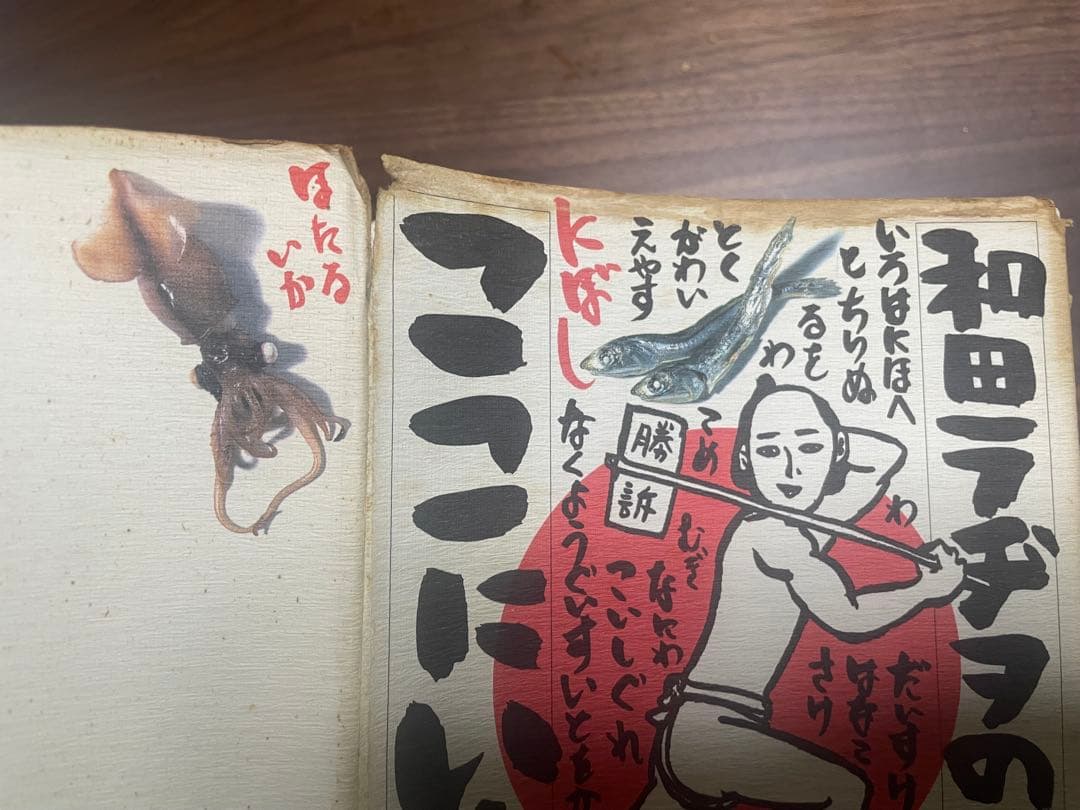 和田ラヂヲの
ここにい
いろはにほへ
とちりぬ
るを
わ
とく
がわい
えやす
にぼし
わ
勝訴
こめ
むぎ
なにわ
こいしぐれ
なくようぐいすいとを
だいすけ
はなこ
さけ
ほたる
いか